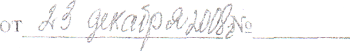 от 23 декабря 2008г №